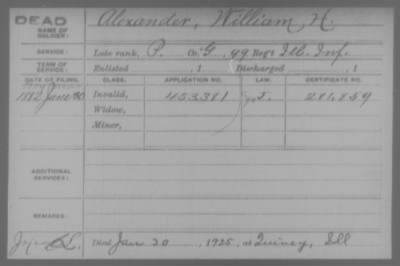 DEAD Alexander, William H.
NAME OF SOLDIER:
SERVICE: Late rank, P. Co. G, 49 Reg't Ill. Inf.
TERM OF SERVICE: Enlisted , 1 Discharged , 1
DATE OF FILING. CLASS. APPLICATION NO. LAW. CERTIFICATE NO.
1882 June 30 Invalid, 453,381 281,859
Widow,
Minor,
ADDITIONAL SERVICES:
REMARKS:
Died Jan 20, 1925, at Quincy, Ill